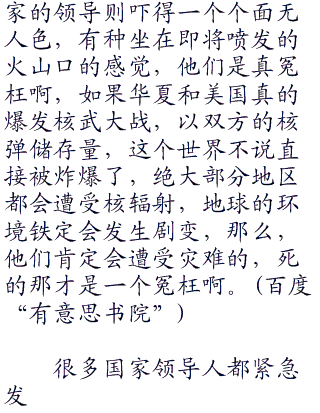 家的领导则吓得一个个面无
人色，有种坐在即将喷发的
火山口的感觉，他们是真冤
枉啊，如果华夏和美国真的
爆发核武大战，以双方的核
弹储存量，这个世界不说直
接被炸爆了，绝大部分地区
都会遭受核辐射，地球的环
境铁定会发生剧变，那么，
他们肯定会遭受灾难的，死
的那才是一个冤枉啊。(百度
“有意思书院”)
很多国家领导人都紧急
发